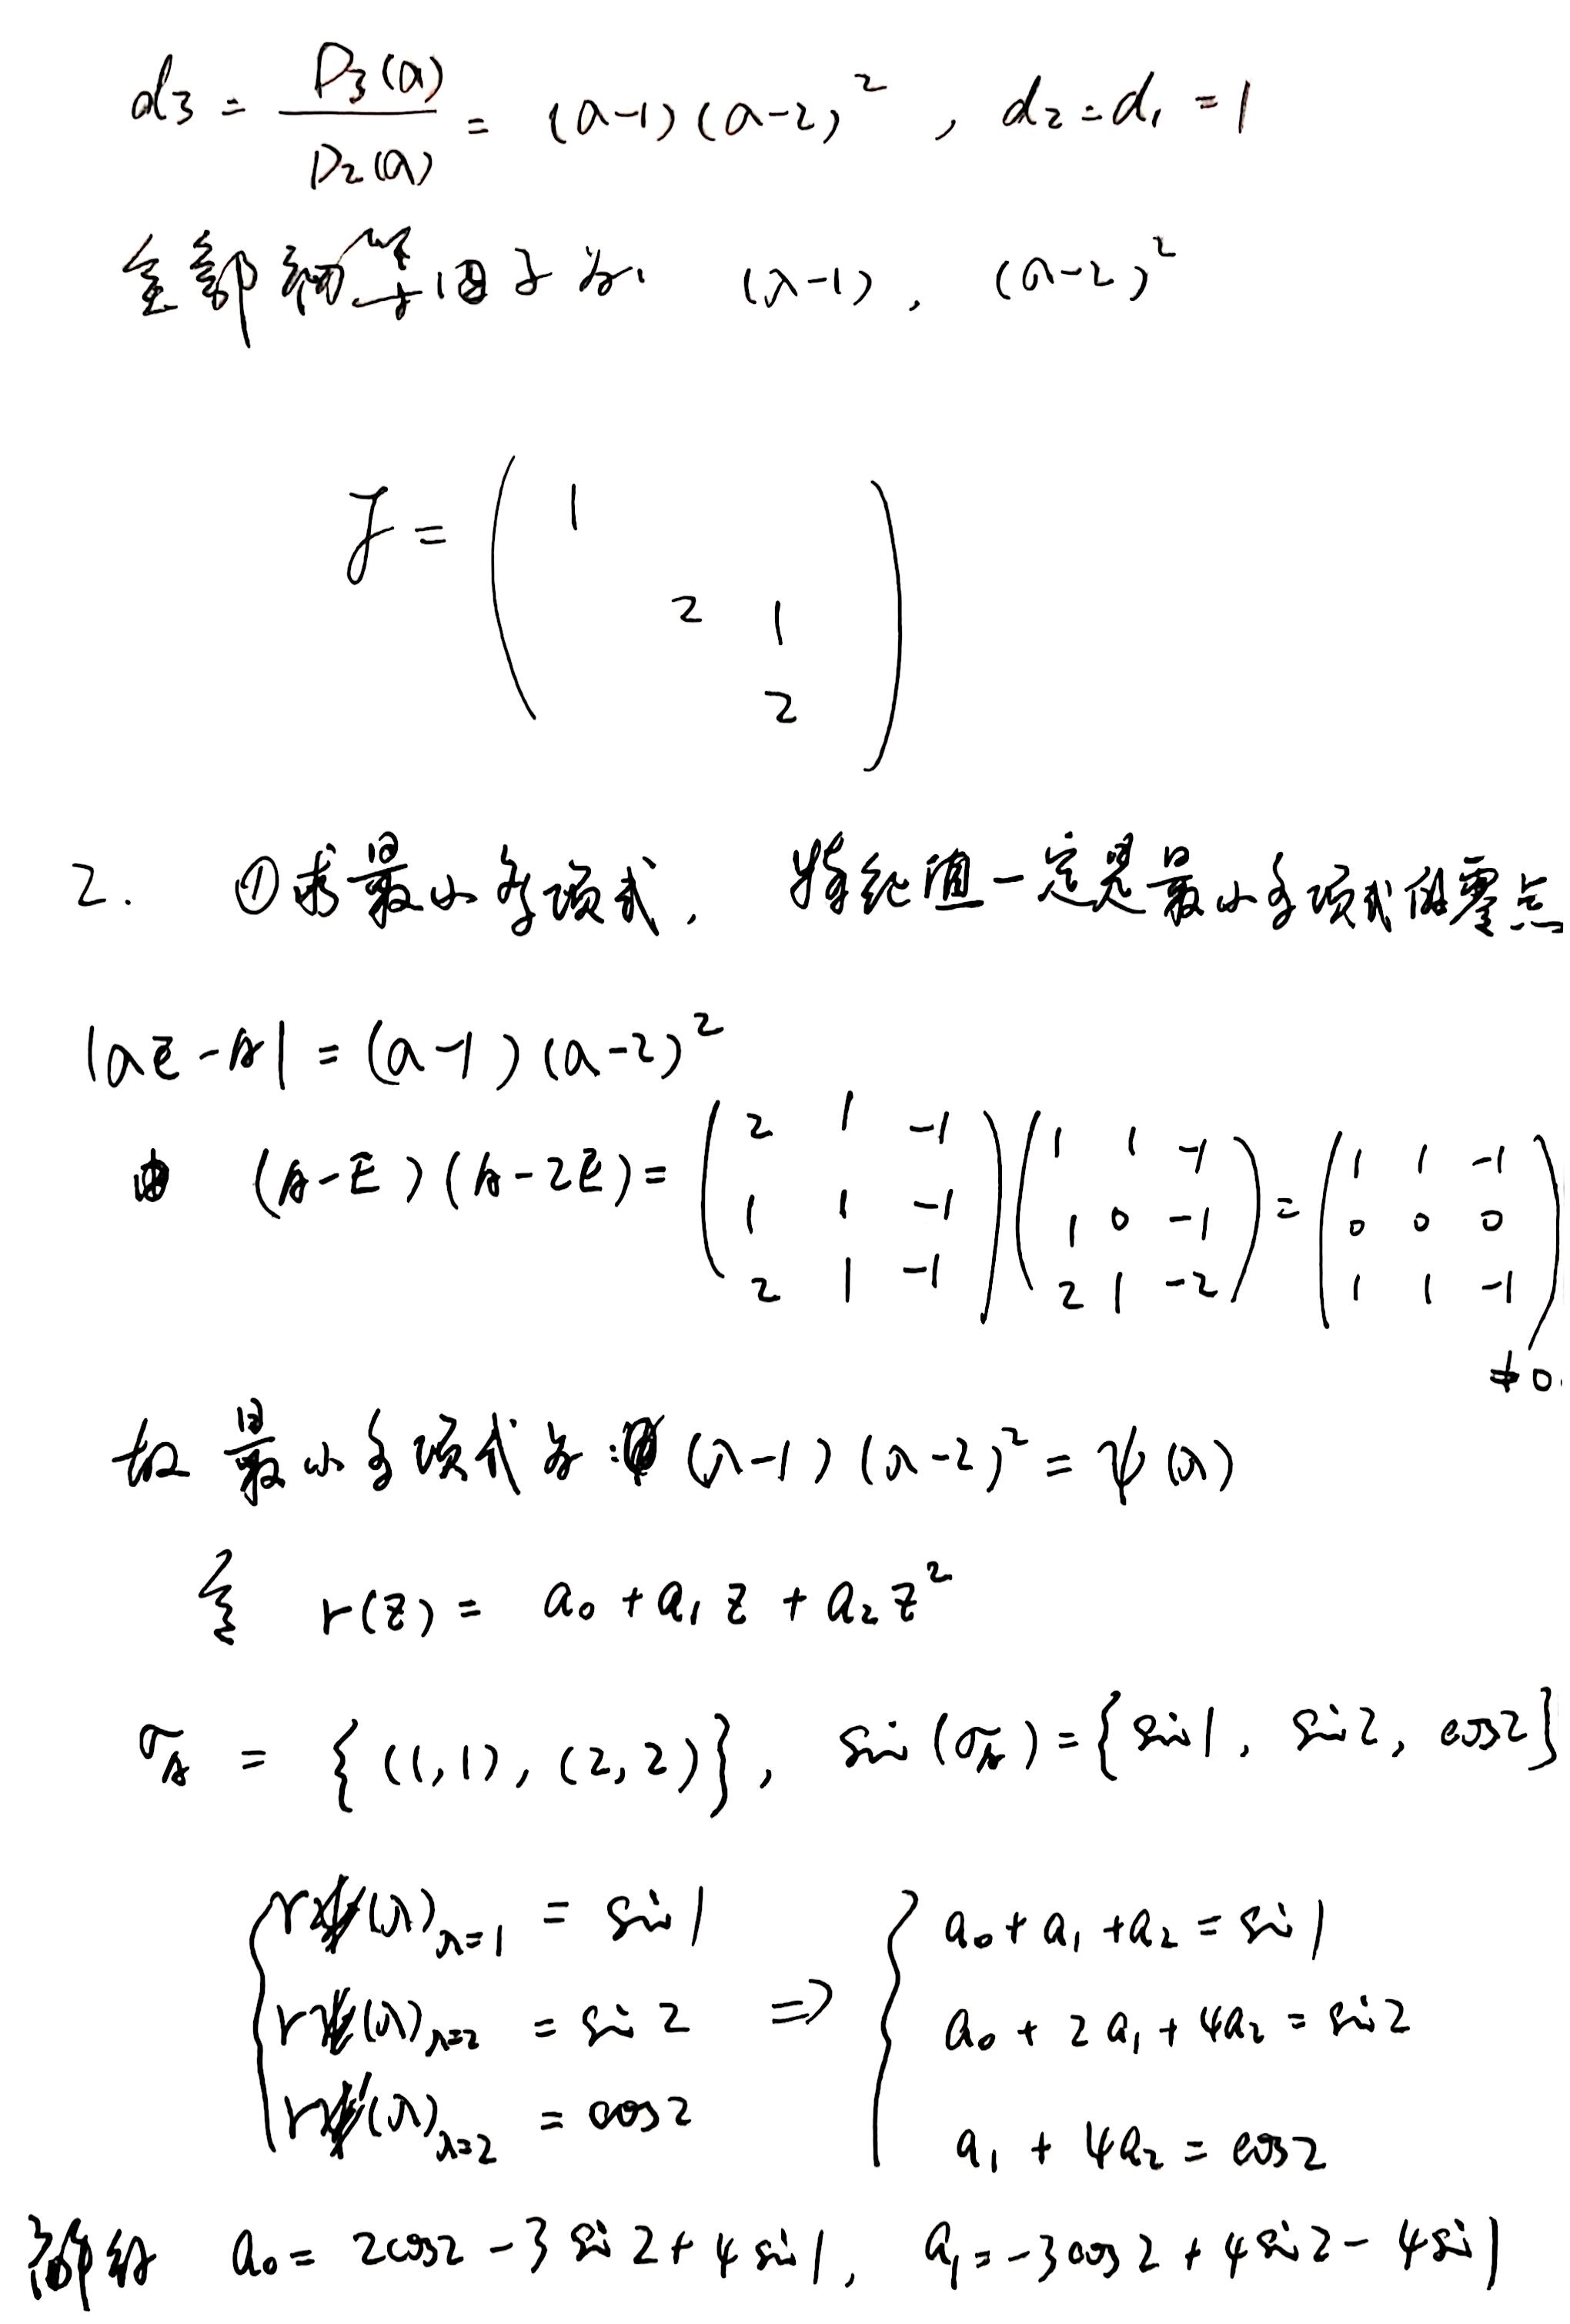 d₃ = D₃(λ) / D₂(λ) = (λ-1)(λ-2)² , d₂ = d₁ = 1
全部初等因子为 (λ-1), (λ-2)²
J = ( 1
2 1
2 )
2. ①求最小多项式, 特征值一定是最小多项式的零点
|λE-A| = (λ-1)(λ-2)²
由 (A-E)(A-2E) = ( 2 1 -1 ; 1 1 -1 ; 2 1 -1 ) ( 1 1 -1 ; 1 0 -1 ; 2 1 -2 ) = ( 1 1 -1 ; 0 0 0 ; 1 1 -1 ) ≠ 0.
故最小多项式为: (λ-1)(λ-2)² = ψ(λ)
令 r(z) = a₀ + a₁z + a₂z²
σ_A = {(1,1), (2,2)}, sin(σ_A) = {sin1, sin2, cos2}
{ r(λ)_{λ=1} = sin1
r(λ)_{λ=2} = sin2
r'(λ)_{λ=2} = cos2
⇒ { a₀ + a₁ + a₂ = sin1
a₀ + 2a₁ + 4a₂ = sin2
a₁ + 4a₂ = cos2
解得 a₀ = 2cos2 - 3sin2 + 4sin1, a₁ = -3cos2 + 4sin2 - 4sin1